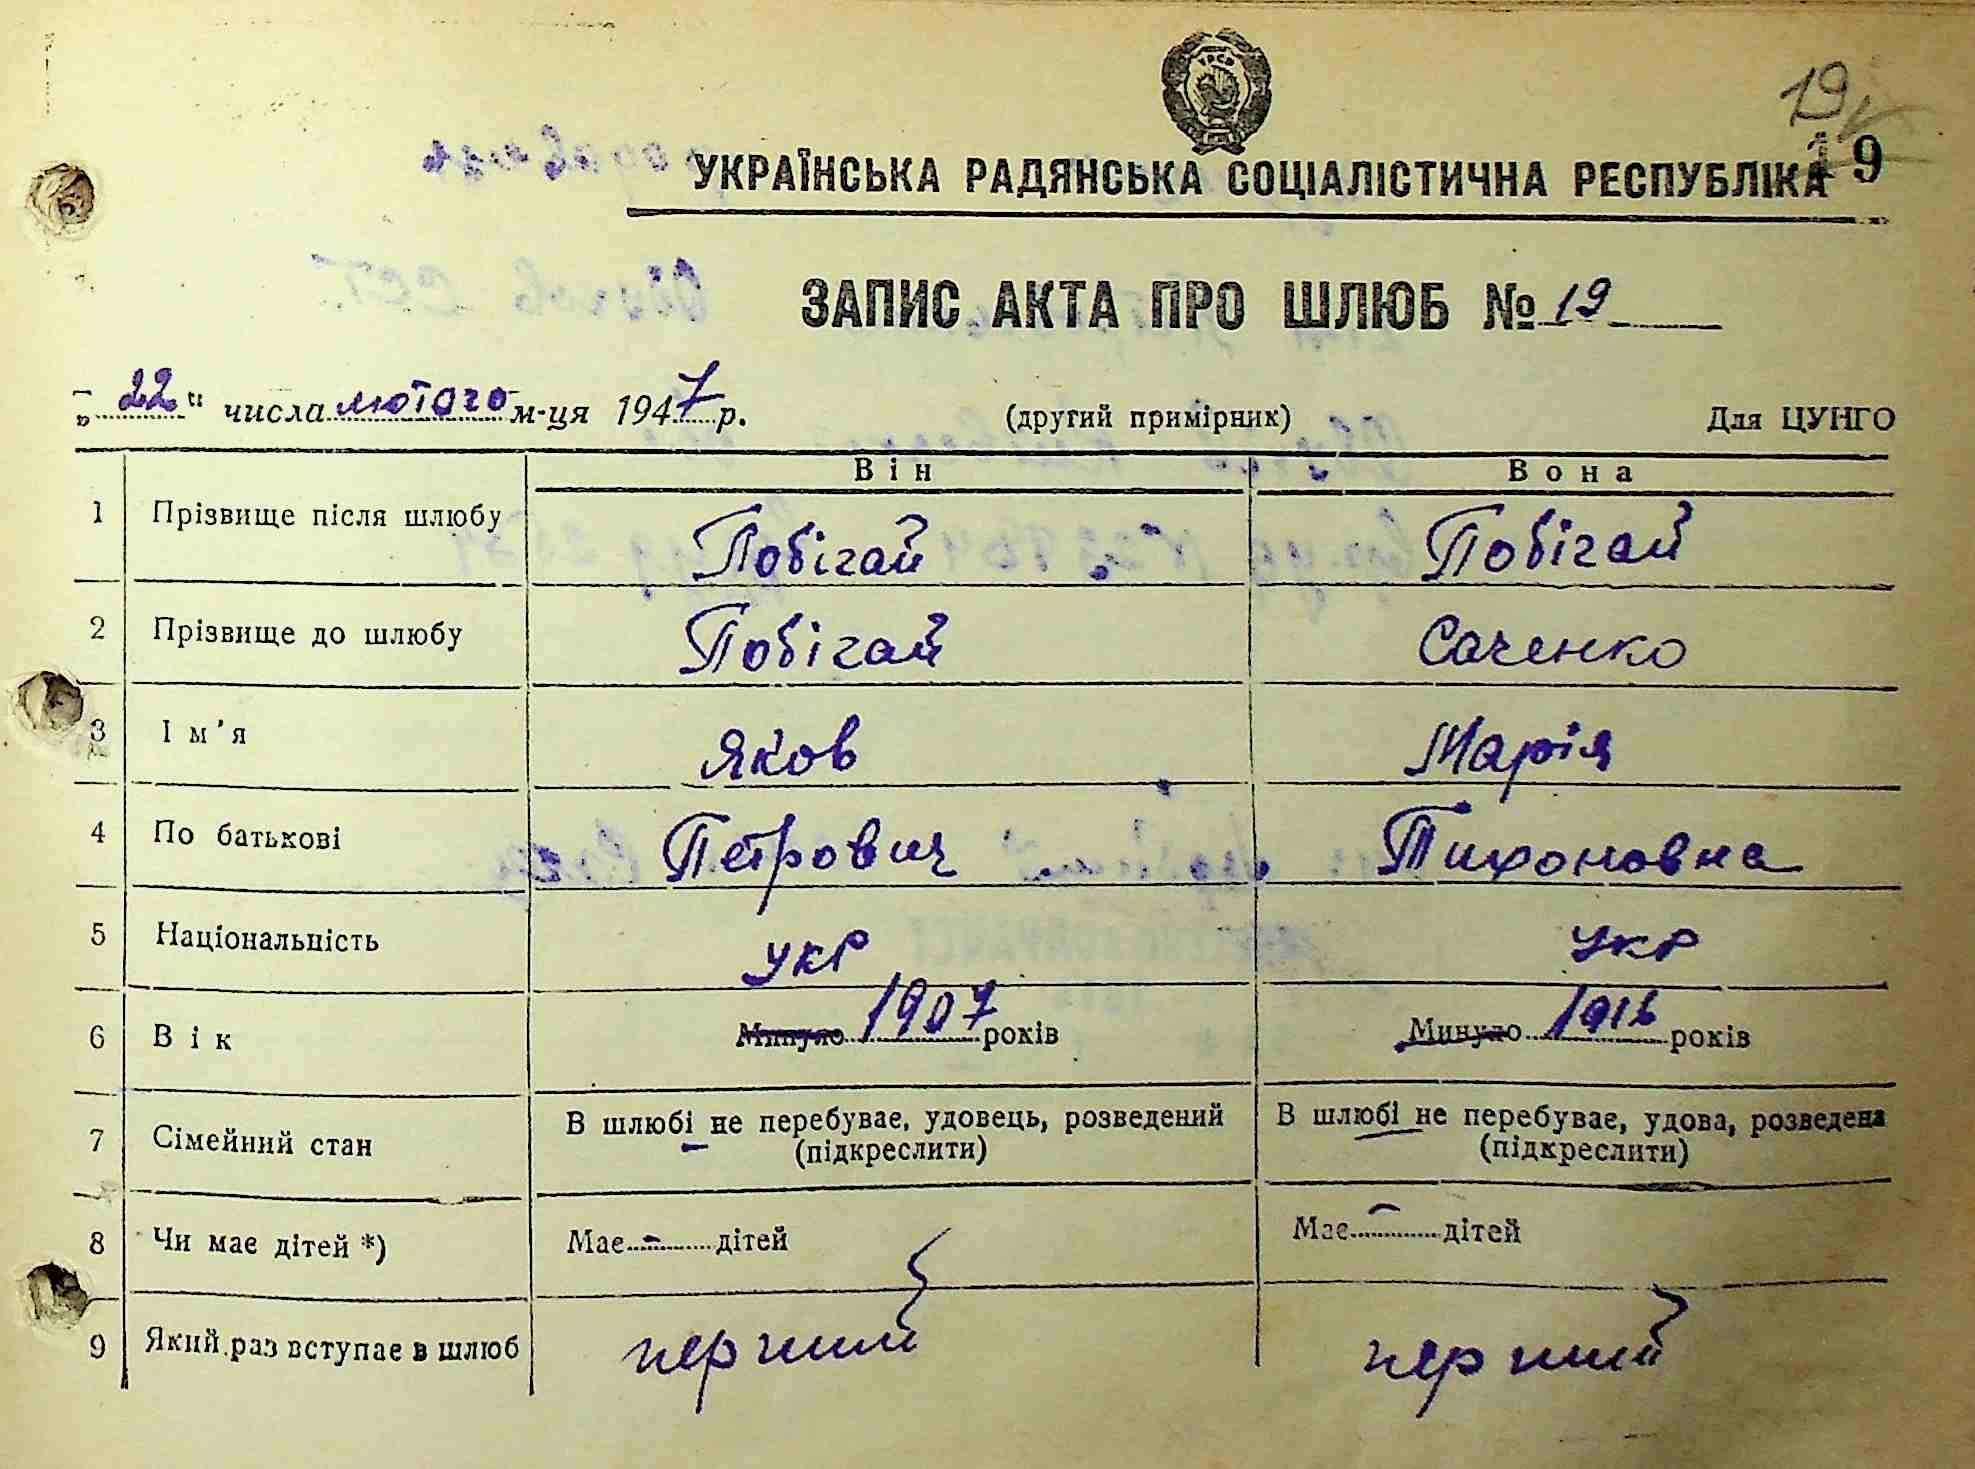 УРСР
19
УКРАЇНСЬКА РАДЯНСЬКА СОЦІАЛІСТИЧНА РЕСПУБЛІКА 19
ЗАПИС АКТА ПРО ШЛЮБ № 19
„22“ числа лютого м-ця 1947 р. (другий примірник) Для ЦУНГО
Він Вона
1 Прізвище після шлюбу Побігай Побігай
2 Прізвище до шлюбу Побігай Саченко
3 Ім'я Яков Марія
4 По батькові Петрович Тихоновна
5 Національність укр укр
6 Вік Минуло 1907 років Минуло 1916 років
7 Сімейний стан В шлюбі не перебуває, удовець, розведений В шлюбі не перебуває, удова, розведена
(підкреслити) (підкреслити)
8 Чи має дітей *) Має - дітей Має - дітей
9 Який раз вступає в шлюб перший перший